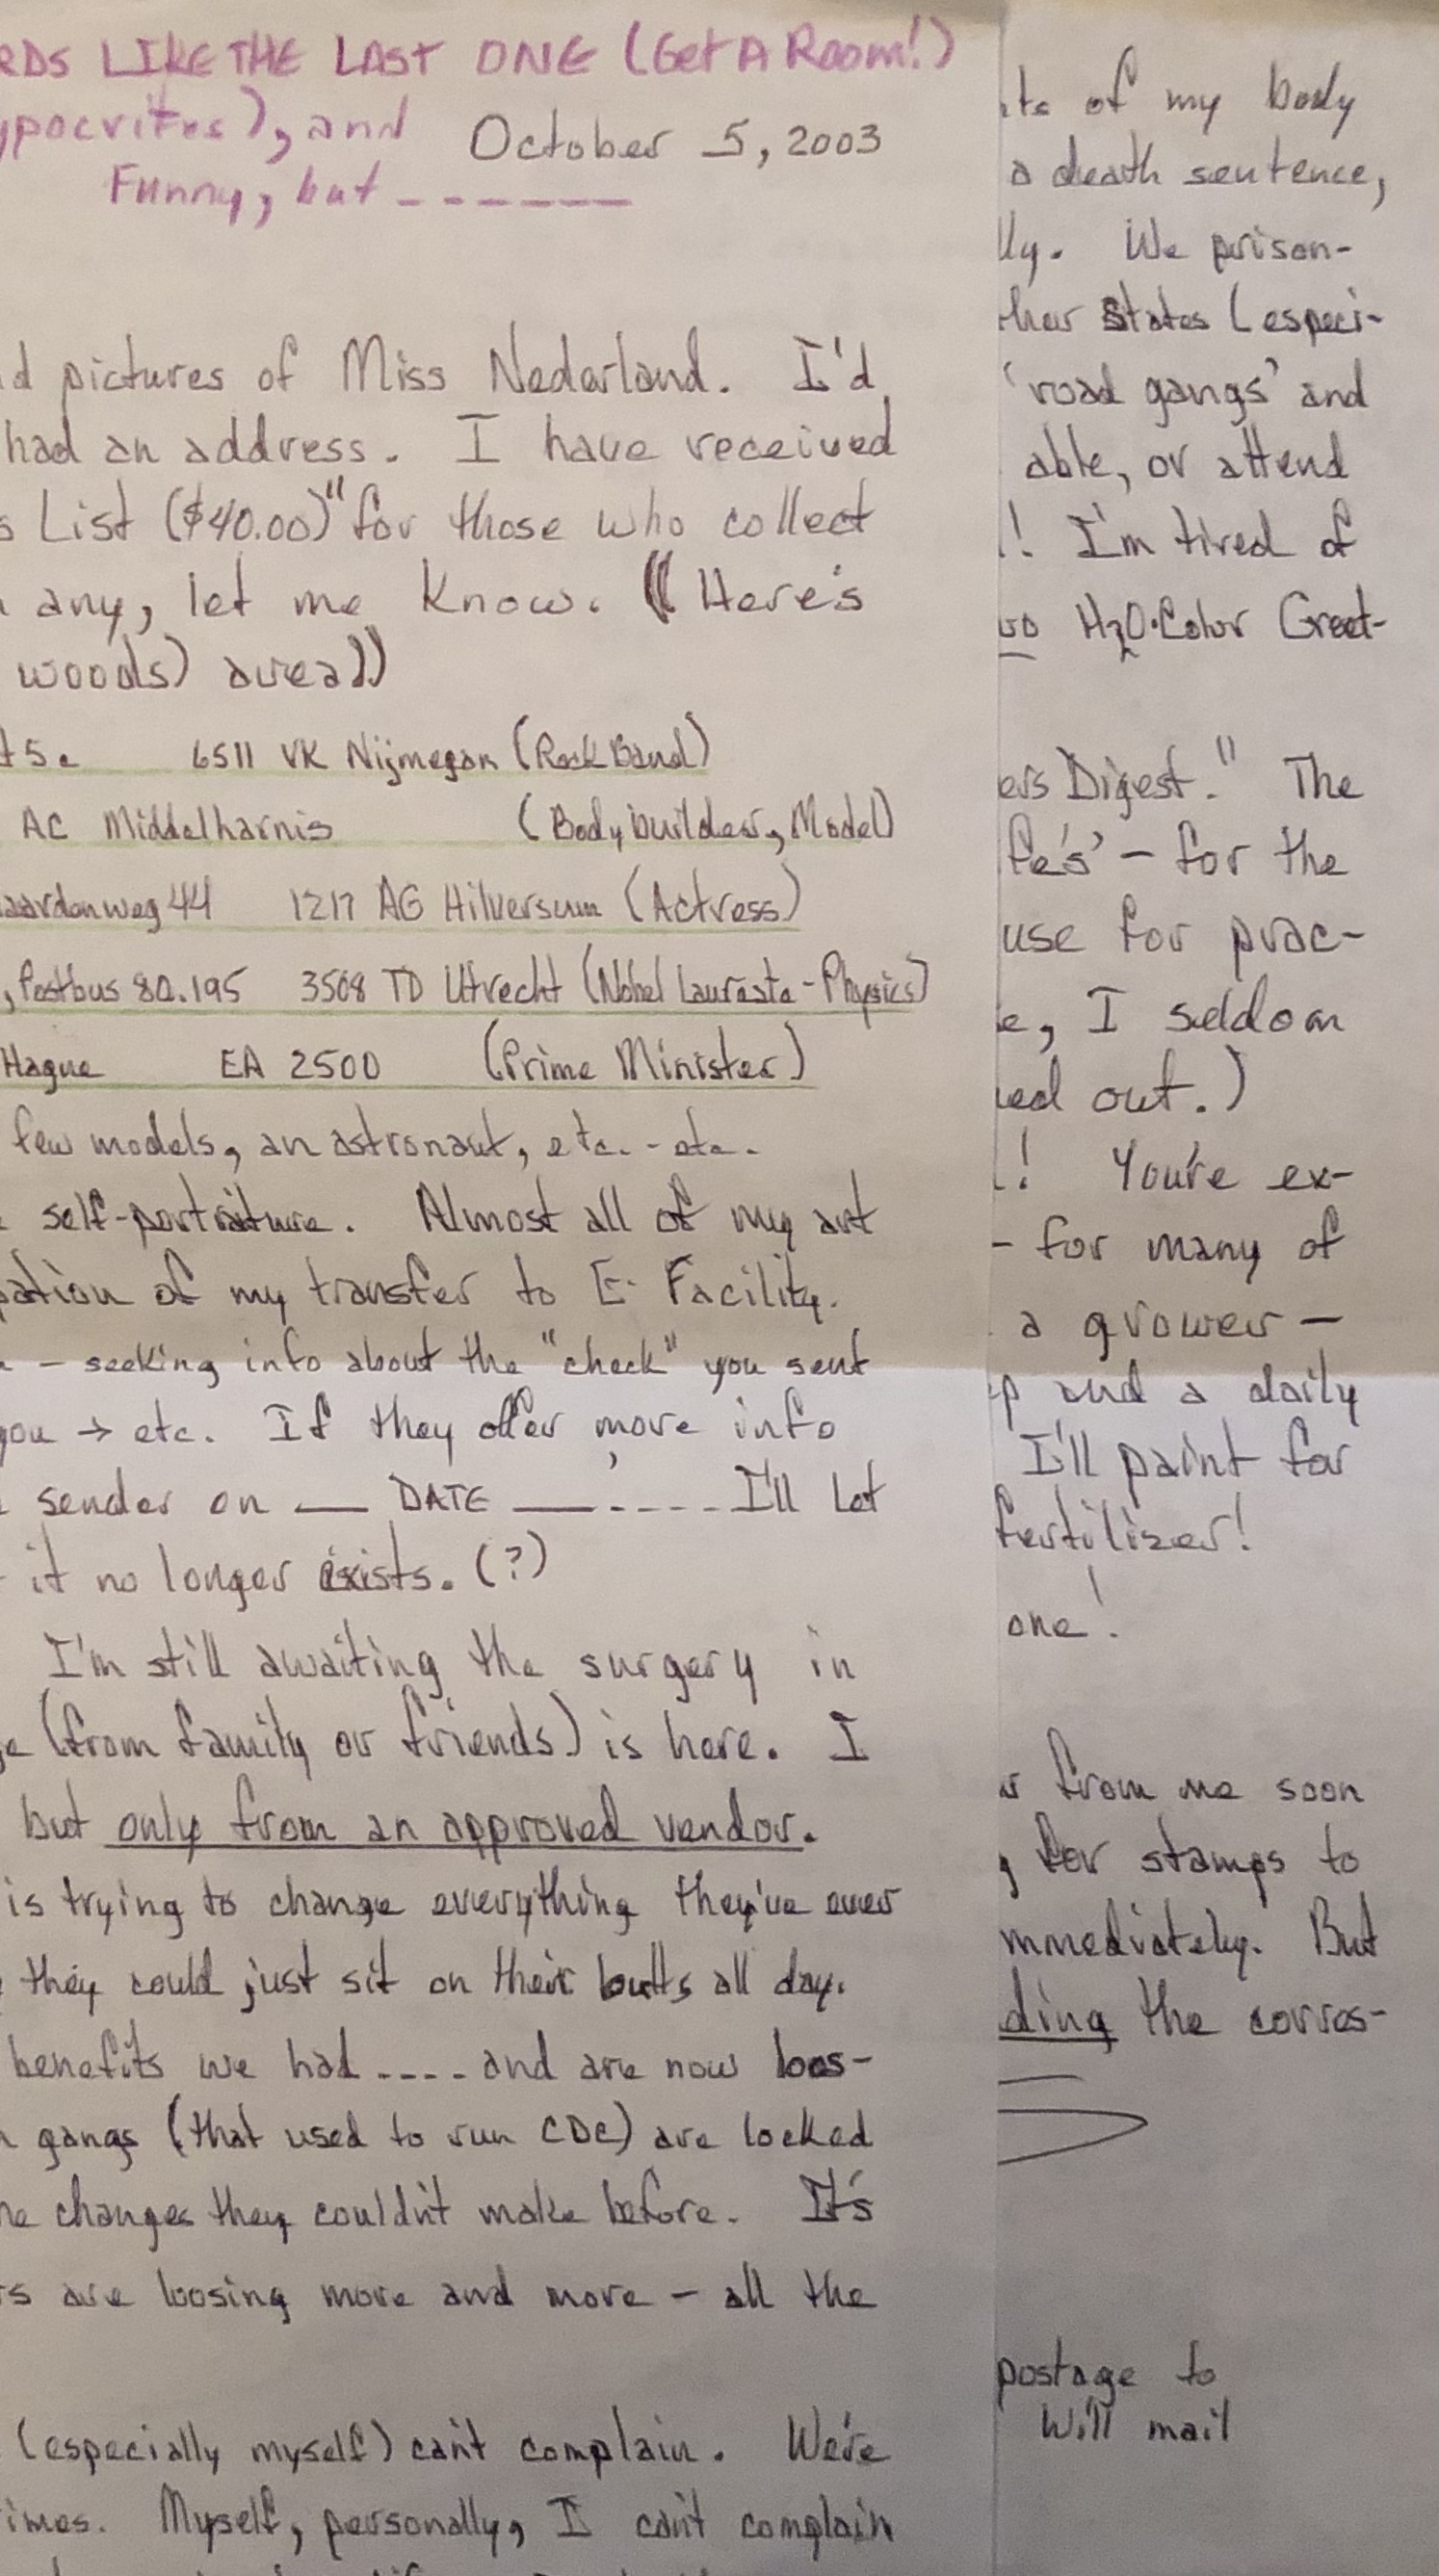 RDS LIKE THE LAST ONE (Get A Room!)
ypocrites), and October 5, 2003
Funny, but ------
d pictures of Miss Nederland. I'd
had an address. I have received
s List ($40.00)" for those who collect
any, let me know. (( Here's
woods) area))
6511 VK Nijmegen (Rock Band)
AC Middelharnis (Bodybuilder, Model)
aardenweg 44 1217 AG Hilversum (Actress)
, Postbus 80.195 3508 TD Utrecht (Nobel Laureate - Physics)
Hague EA 2500 (Prime Minister)
few models, an astronaut, etc. - etc.
self-portraiture. Almost all of my art
pation of my transfer to E- Facility.
- seeking info about the "check" you sent
you → etc. If they offer more info
sender on — DATE — ---- I'll let
it no longer exists. (?)
I'm still awaiting the surgery in
ge (from family or friends) is here. I
but only from an approved vendor.
is trying to change everything they've ever
they could just sit on their butts all day.
benefits we had ---- and are now loos-
gangs (that used to run CDC) are locked
changes they couldn't make before. It's
rs are loosing more and more - all the
(especially myself) can't complain. We're
imes. Myself, personally, I can't complain
ts of my body
a death sentence,
lly. We prison-
ther States (especi-
'road gangs' and
able, or attend
! I'm tired of
H2O•Color Greet-
ers Digest." The
fe's' - for the
use for prac-
e, I seldom
ed out.)
! You're ex-
- for many of
a grower -
p and a daily
I'll paint for
fertilizer!
one!
from me soon
, for stamps to
mmediately. But
ding the corres-
postage to
Will mail